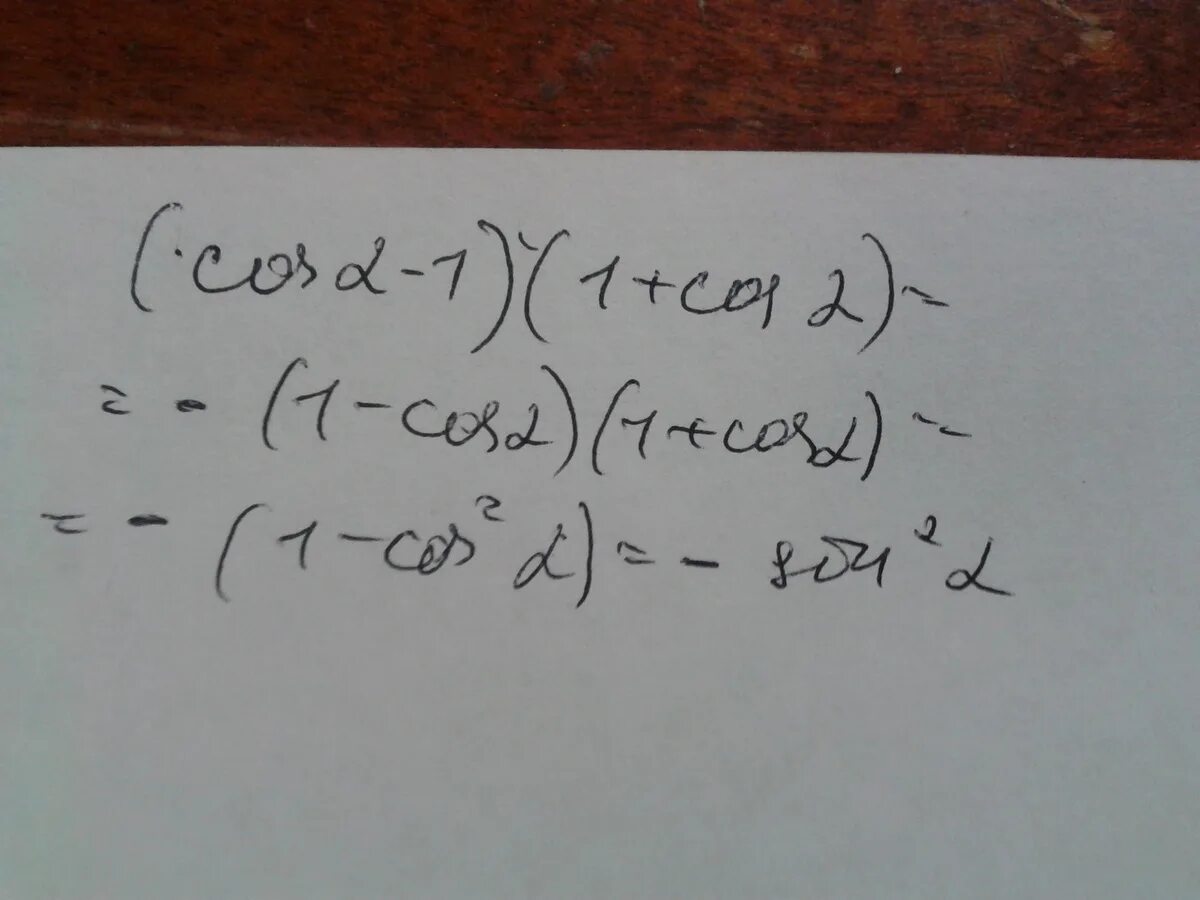 (cosα-1)(1+cosα)=
=-(1-cosα)(1+cosα)=
=-(1-cos²α)=-sin²α